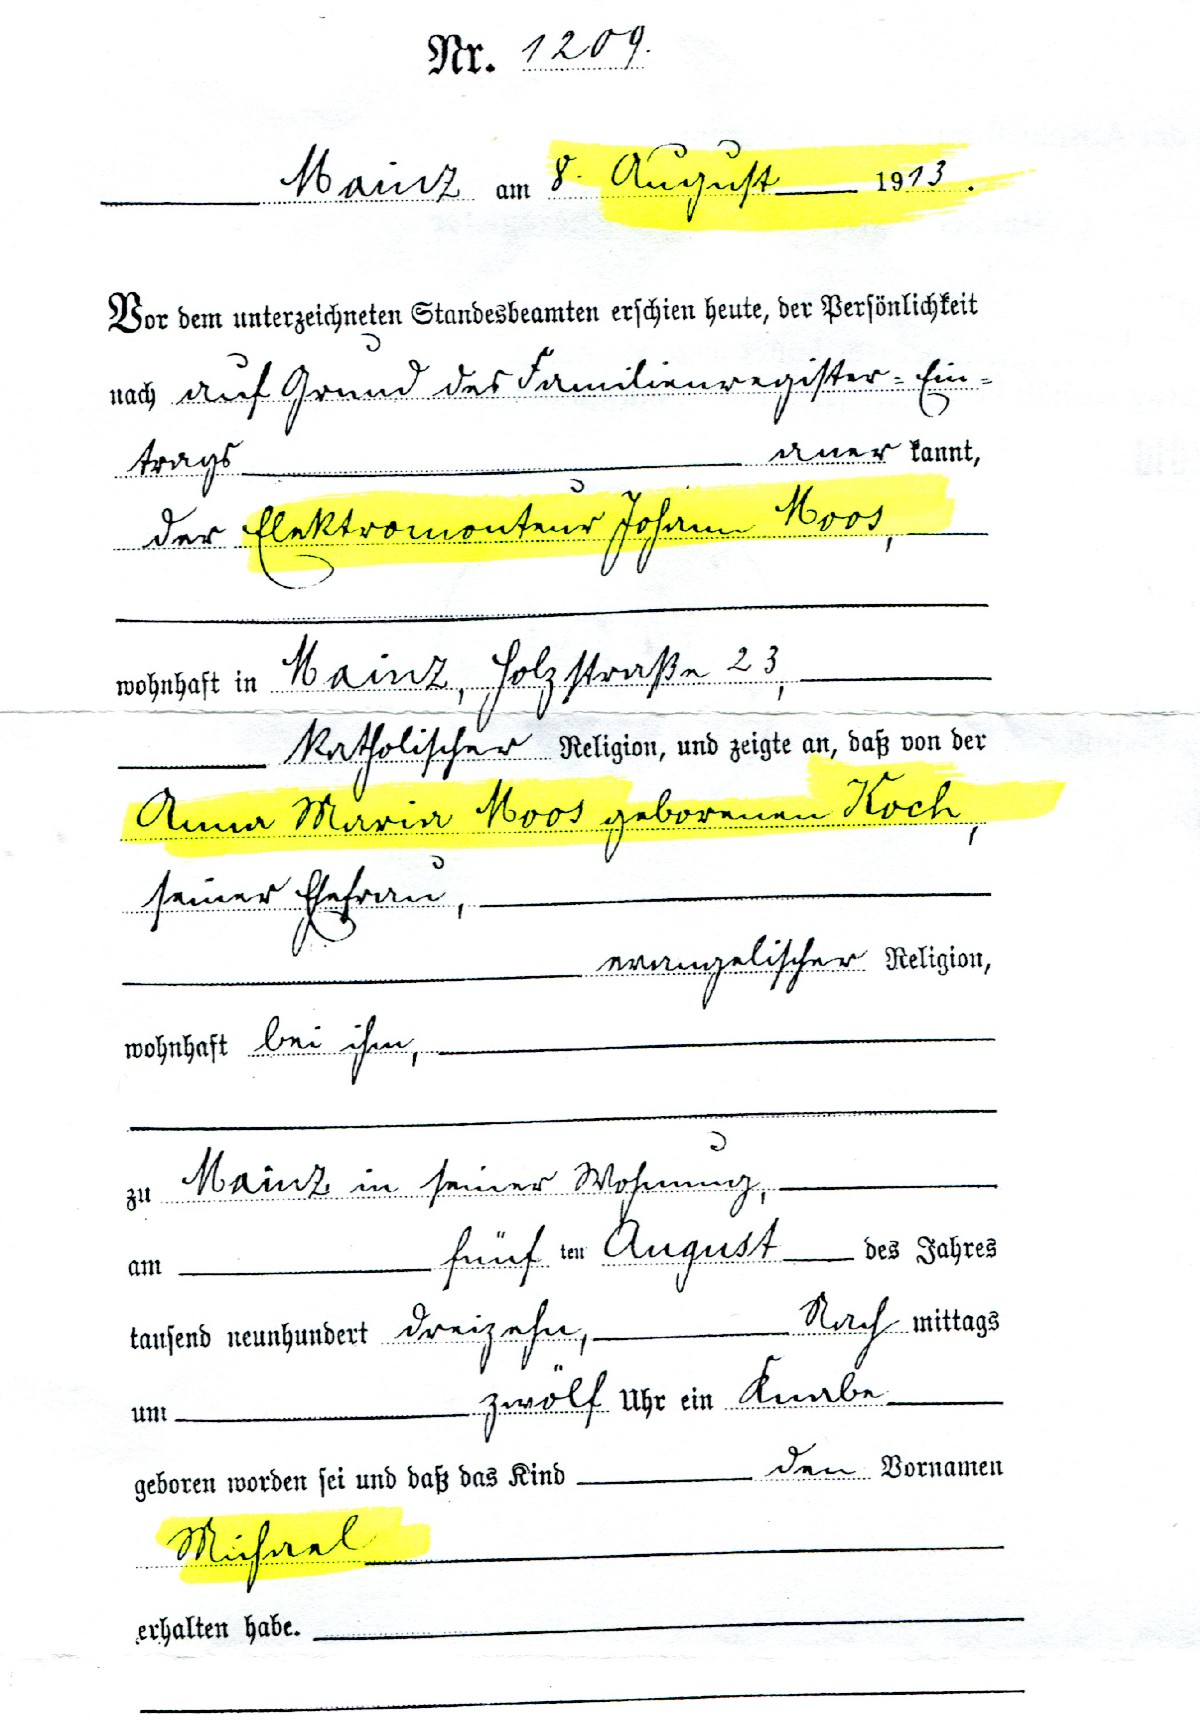 Nr. 1209.
Mainz am 8. August 1913.
Vor dem unterzeichneten Standesbeamten erschien heute, der Persönlichkeit
nach auf Grund des Familienregister-Ein-
trags aner kannt,
der Elektromonteur Johann Moos,
wohnhaft in Mainz, Holzstraße 23,
katholischer Religion, und zeigte an, daß von der
Anna Maria Moos geborenen Koch,
seiner Ehefrau,
evangelischer Religion,
wohnhaft bei ihm,
zu Mainz in seiner Wohnung,
am fünf ten August des Jahres
tausend neunhundert dreizehn, Nach mittags
um zwölf Uhr ein Knabe
geboren worden sei und daß das Kind den Vornamen
Michael
erhalten habe.